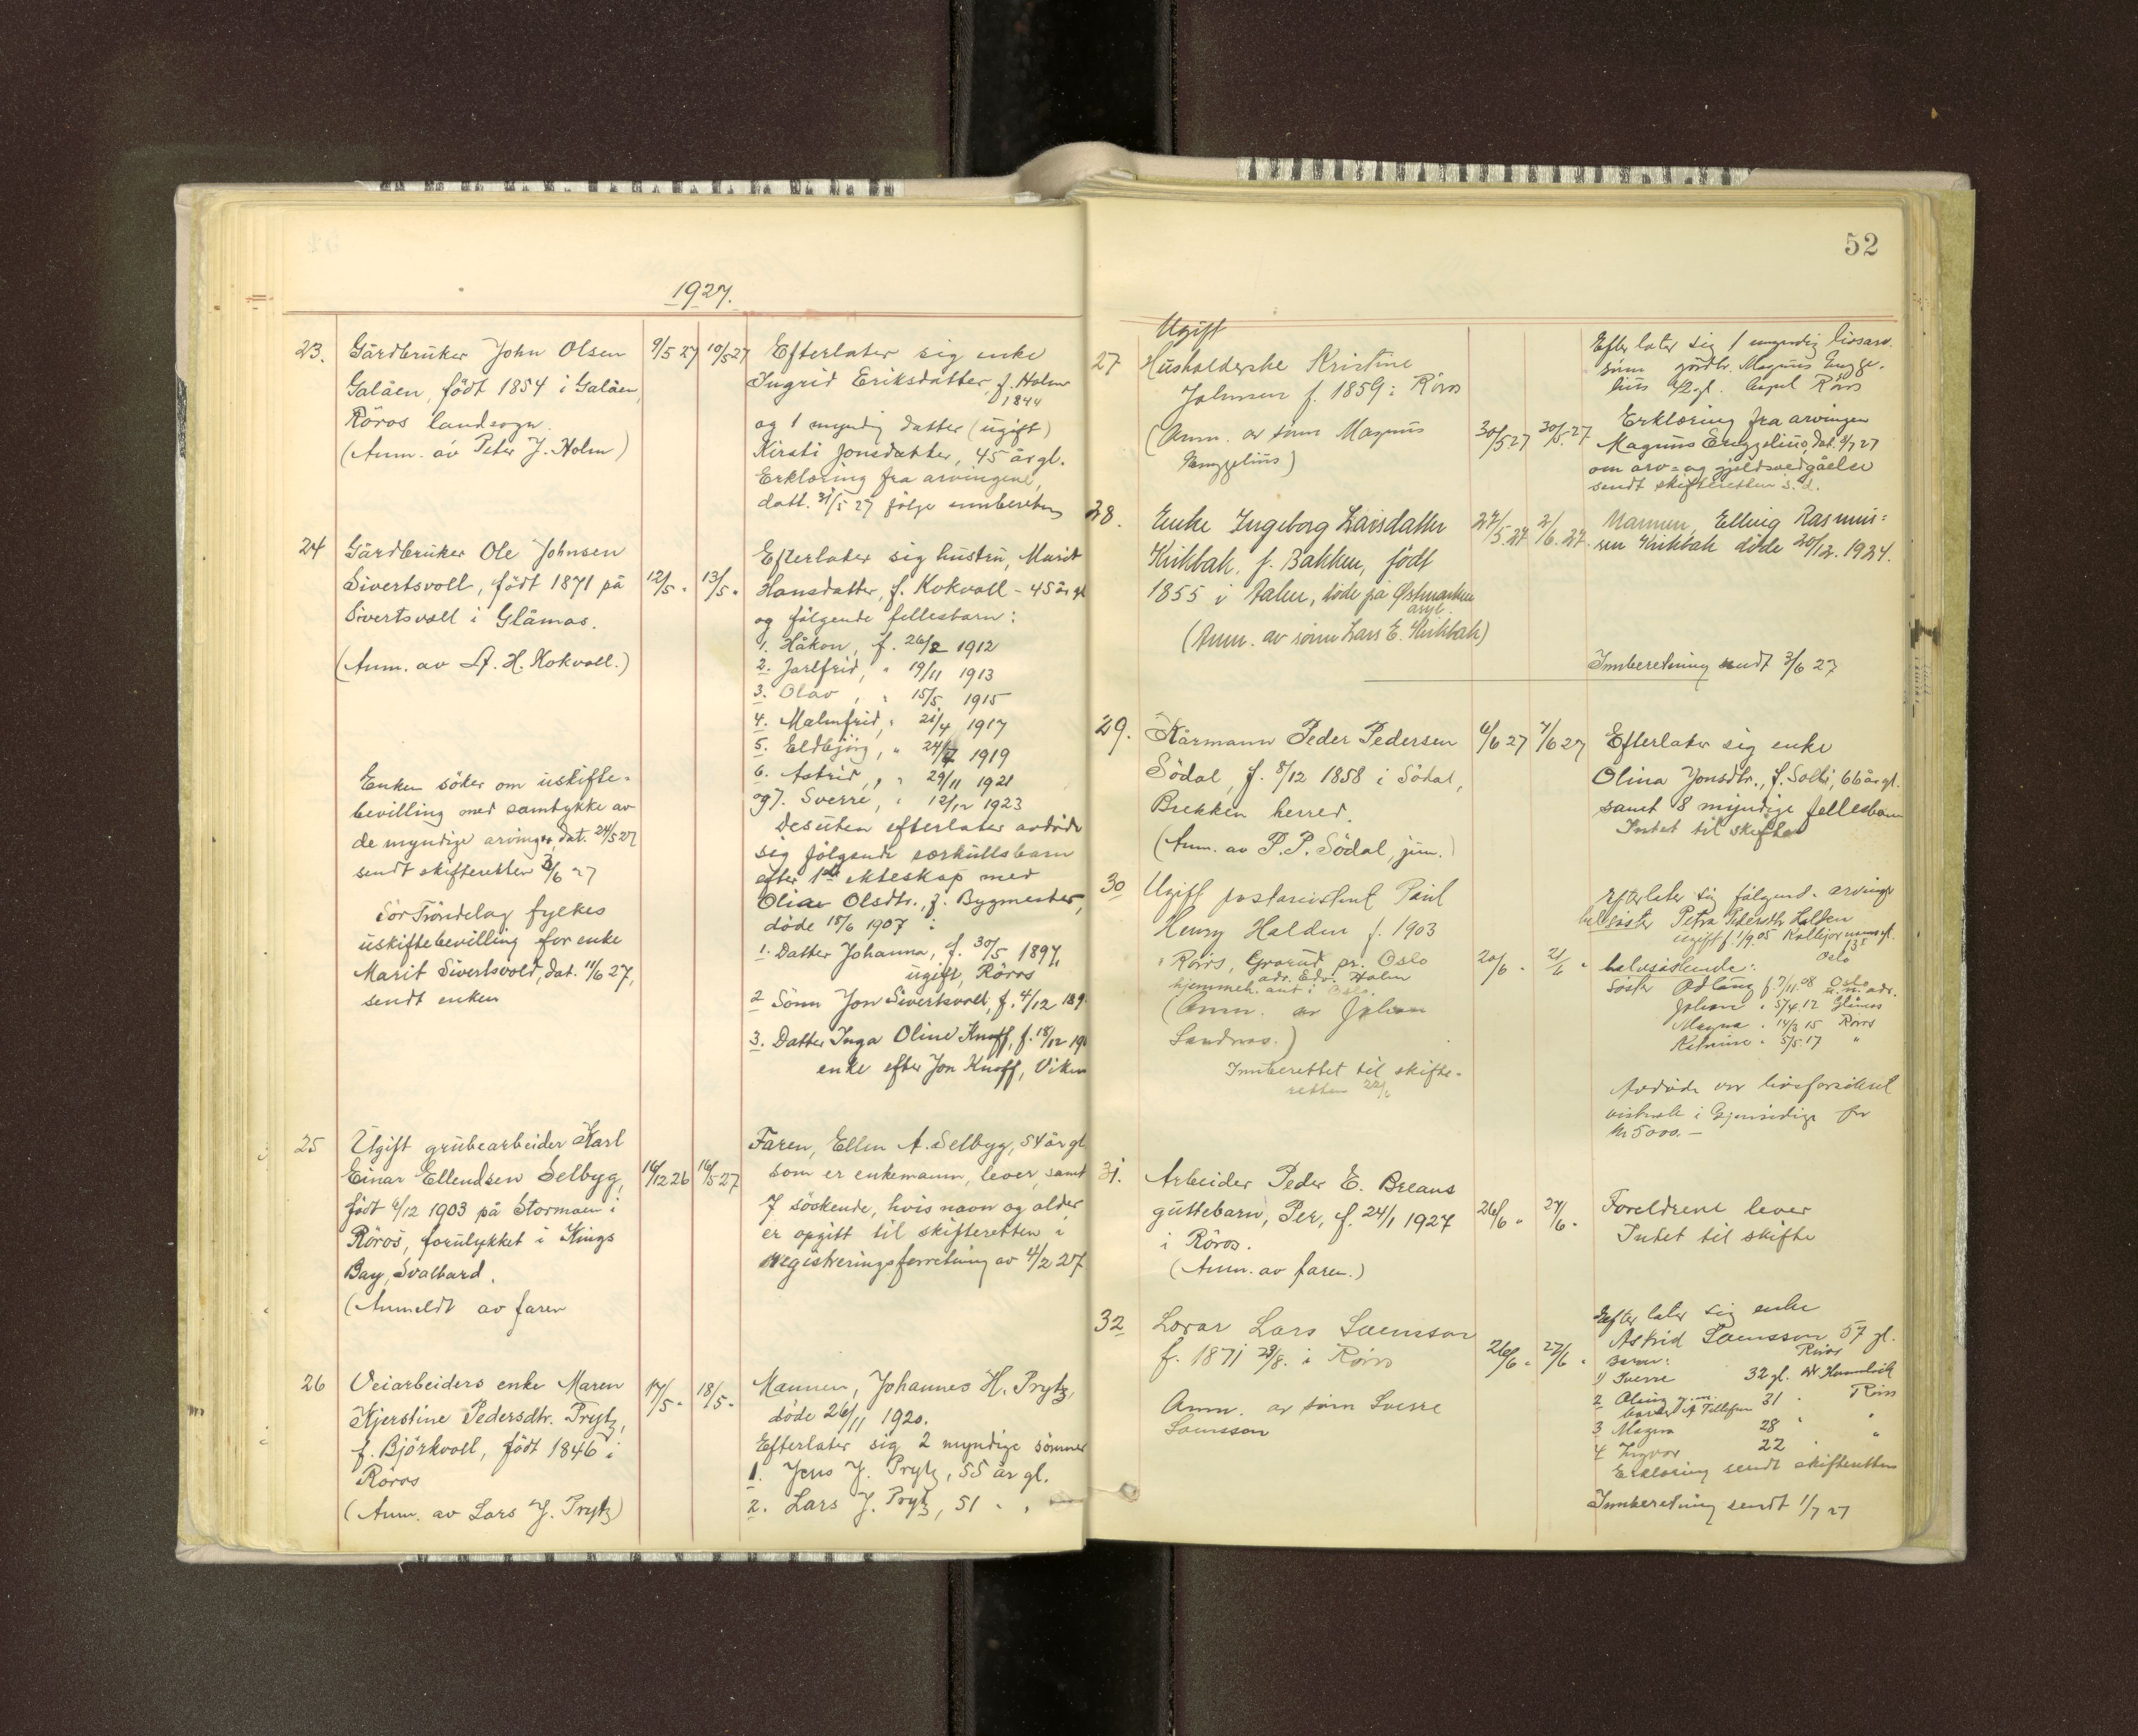 1927.
23. Gårdbruker John Olsen 9/5 27 10/5 27 Efterlater sig enke
Galåen, født 1854 i Galåen, Ingrid Eriksdatter, f. Holm
1844
Röros landsogn. og 1 myndig datter (ugift)
(Anm. av Peter J. Holm) Kirsti Jonsdatter, 45 år gl.
Erklæring fra arvingene,
datt. 31/5 27 følge innberetn
24 Gårdbruker Ole Johnsen Efterlater sig hustru, Marit
Sivertsvoll, født 1871 på 12/5 " 13/5 " Hansdatter, f. Kokvoll - 45 år gl
Sivertsvoll i Glåmos. og følgende fellesbarn:
1. Håkon, f. 26/2 1912
(Anm. av A. H. Kokvoll.) 2. Jarlfrid, " 19/11 1913
3. Olav, " 15/5 1915
4. Malmfrid, " 21/4 1917
5. Eldbjörg, " 24/7 1919
6. Astrid, " 29/11 1921
og 7. Sverre, " 12/12 1923
Enken söker om uskifte-
bevilling med samtykke av
de myndige arvinger, dat. 24/5 27
sendt skifteretten 3/6 27
Desuten efterlater avdöde
sig følgende særkullsbarn
efter 1ste ekteskap med
Oliae Olsdtr., f. Bygmester,
döde 15/6 1907:
Sör Tröndelag fylkes
uskiftebevilling for enke
Marit Sivertsvold, dat. 11/6 27,
sendt enken
1. Datter Johanna, f. 30/5 1897,
ugift, Röros
2 Sönn Jon Sivertsvoll, f. 4/12 189
3. Datter Inga Oline Knoff, f. 18/12 19
enke efter Jon Knoff, Viken
25 Ugift grubearbeider Karl Faren, Ellen A. Selbyg, 54 år gl
Einar Ellendsen Selbyg, 16/12 26 16/5 27 som er enkemann, lever, samt
født 6/12 1903 på Stormoen i 7 söskende, hvis navn og alder
Röros, forulykket i Kings er opgitt til skifteretten i
Bay, Svalbard. registreringsforretning av 4/2 27.
(Anmeldt av faren
26 Veiarbeiders enke Maren 17/5 " 18/5 " Mannen, Johannes H. Prytz,
Kjerstine Pedersdtr. Prytz, döde 26/11 1920.
f. Björkvoll, født 1846 i Efterlater sig 2 myndige sönner
Röros 1. Jens J. Prytz, 55 år gl.
(Anm. av Lars J. Prytz) 2. Lars J. Prytz, 51 " "
52
Ugift
27 Husholderske Kristine Efterlater sig 1 myndig livsarv.
Johnsen f. 1859 i Röros sönn gårdbr. Magnus Engze-
lius 42 gl. Röros
(Anm. av sönn Magnus 30/5 27 30/5 27 Erklæring fra arvingen
Engzelius) Magnus Engzelius, dat. 1/7 27
om arv- og gjeldsvedgåelse
sendt skifteretten s.d.
28. Enke Ingeborg Larsdatter 27/5 27 2/6 27 Mannen, Elling Rasmus-
Kirkbak, f. Bakken, født sen Kirkbak döde 20/12. 1924.
1855 i Dalen, döde på Østmarken
asyl.
(Anm. av sönn Lars E. Kirkbak)
Innberetning sendt 3/6 27
29. Kårmann Peder Pedersen 6/6 27 7/6 27 Efterlater sig enke
Södal, f. 8/12 1858 i Södal, Olina Jonsdtr., f. Solli, 66 år gl.
Brekken herred. samt 8 myndige fellesbarn
(Anm. av P. P. Södal, jun.) Intet til skifte
30 Ugift postassistent Paul Efterlater sig følgende arvinger
Henry Halden f. 1903 helsöster Petra Pedersdtr Halden
ugift f. 1/9.05
i Röros, Grorud pr. Oslo 20/6 " 21/6 " Oslo
adr. Edv. Holm halvsöskende:
hjemmeh. ant i Oslo.
(Anm. av Johan Söster Adlaug f. 7/11.08 Oslo
Sandnes.) Johan " 5/4.12 Glåmos
Magna " 14/3 15 Röros
Katrine " 5/5.17 "
Innberettet til skifte-
retten 22/6
Avdöde var livsforsikret
i Gjensidige for
kr 5000.-
31. Arbeider Peder E. Breans
guttebarn, Per, f. 24/1 1927 26/6 " 27/6 " Foreldrene lever
i Röros. Intet til skifte
(Anm. av faren.)
32 Lars Saensson Efterlater sig enke
f. 1871 23/8. i Röros 26/6 " 27/6 " Astrid Saensson 57 gl.
Röros
barn:
1) Sverre 32 gl.
Anm. av sönn Sverre 2 31 " Röros
Saensson 3 Magna 28 " "
4 Ingvar 22 "
Erklæring sendt skifteretten
Innberetning sendt 1/7 27